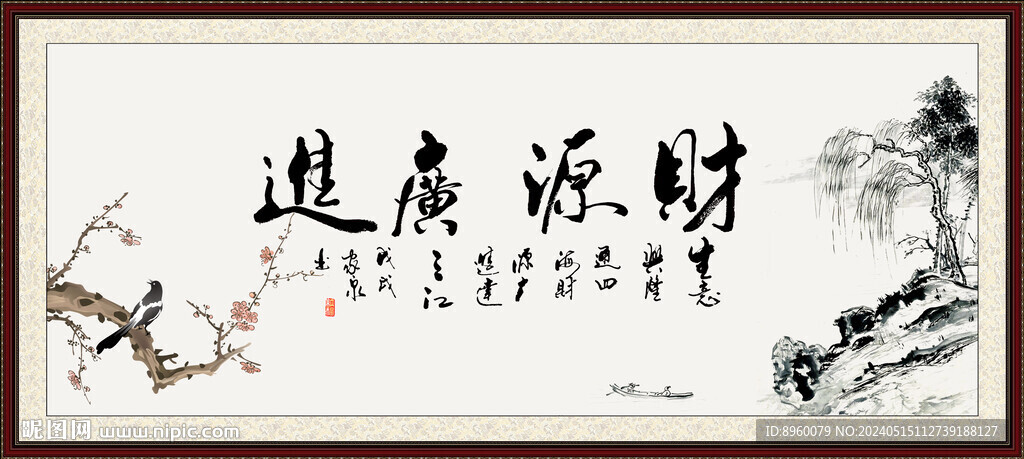 財源廣進
生意
興隆
通四
海財
源广
進達
三江
戊戌
家泉
书
昵图网 www.nipic.com
ID:8960079 NO:20240515112739188127